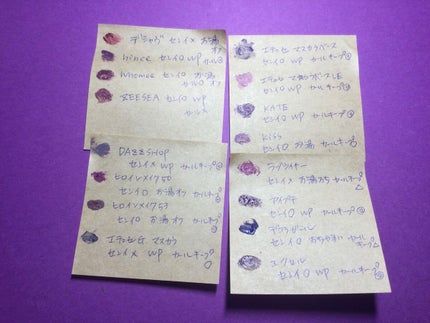 デジャヴ センイメ お湯オフ
hince センイロ WP カール◎
whomee センイロ お湯
カール○ オフ
ZEESEA センイロ WP
カール
DAZZSHOP
センイメ WP カールキープ◎
ヒロインメイク50
センイロ お湯オフ カールキープ
ヒロインメイク53
センイロ お湯オフ カールキープ
エテュセ マスカラ
センイメ WP カールキープ
エテュセ マスカラベース
センイロ WP カールキープ◎
エテュセ マスカラベースLE
センイロ WP カールキープ◎
KATE
センイロ WP カールキープ◎
Kiss
センイロ お湯 カールキープ◎
ラブライナー
センイメ お湯おち カールキープ△
アイプチ
センイロ WP カールキープ◎
デジャヴ
センイロ おちやすい カールキープ△
エクセル
センイロ WP カールキープ